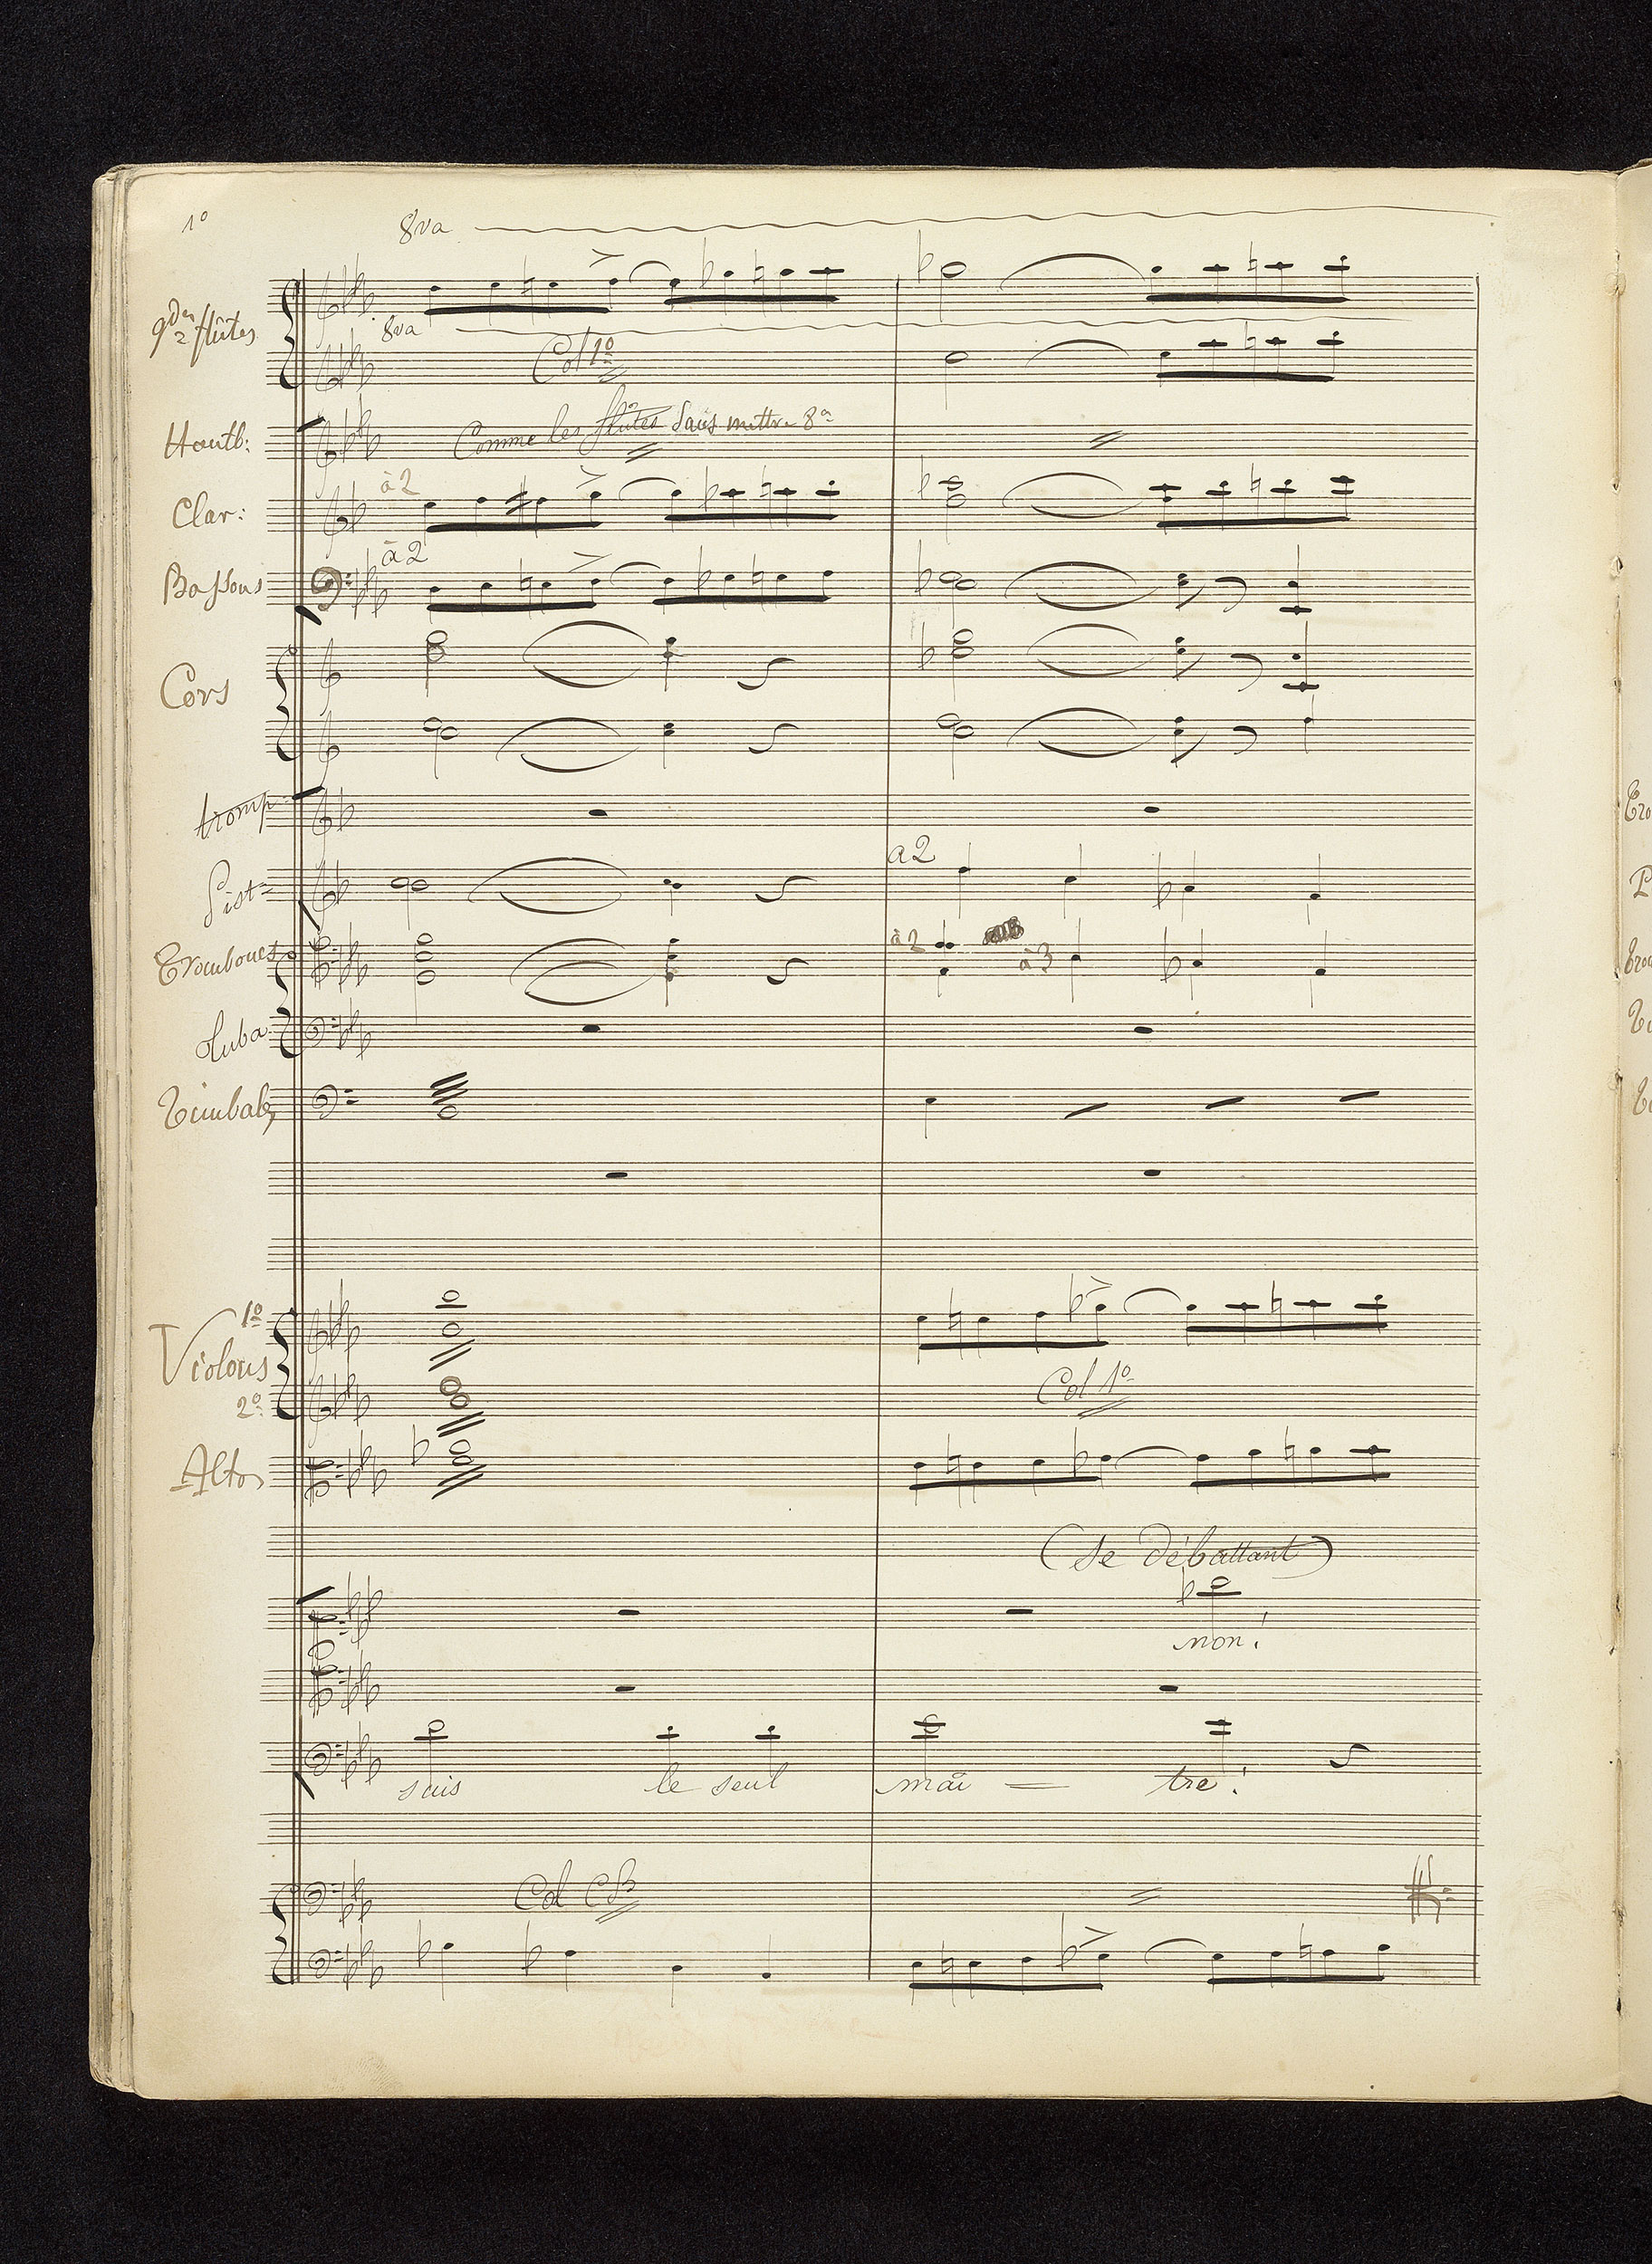 1º
8va
gdes
2 flûtes
8va
Col 1º
Hautb:
Comme les flûtes sans mettre 8ª
à 2
Clar:
à 2
Bassons
Cors
tromp
a 2
Pist=
à 2
à 3
Trombones
Tuba
Timbales
1º
Violons
2º
Col 1º
Altos
(se débattant)
non!
suis le seul maî = tre!
Col CB